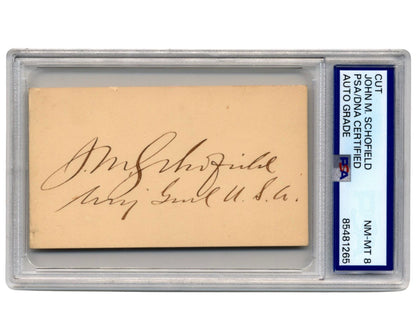 J. M. Schofield
Maj Genl U.S.A.
CUT
JOHN M. SCHOFIELD
PSA/DNA CERTIFIED
AUTO GRADE
PSA
NM-MT 8
85481265